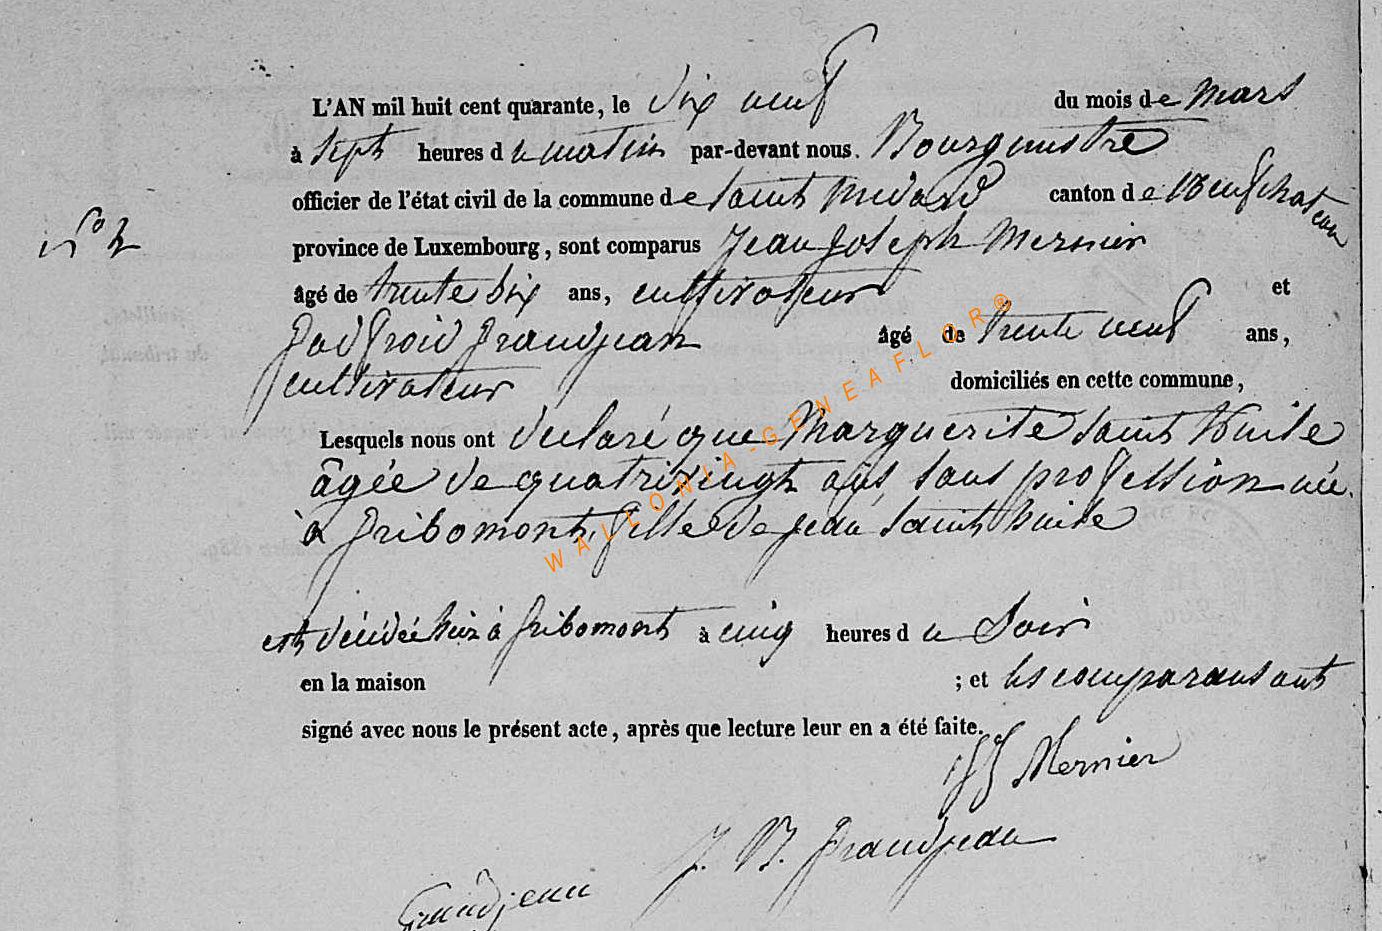 L'AN mil huit cent quarante, le dix neuf du mois de mars
à sept heures du matin par-devant nous. Bourgmestre
officier de l'état civil de la commune de Saint Médard canton de Neufchateau
N° 2
province de Luxembourg, sont comparus Jean Joseph Mernier
âgé de trente six ans, cultivateur et
Godfroid Grandjean âgé de trente neuf ans,
cultivateur domiciliés en cette commune,
Lesquels nous ont declaré que Marguerite Saint
âgée de quatrivingt ans, sans profession née
à Gribomont, fille de Jean Saint
est décédée hier à Gribomont à cinq heures du Soir
en la maison ; et les comparans ont
signé avec nous le présent acte, après que lecture leur en a été faite.
JJ Mernier
J. B. Grandjean
Grandjean
WALLONIA-GENEAFLOR®